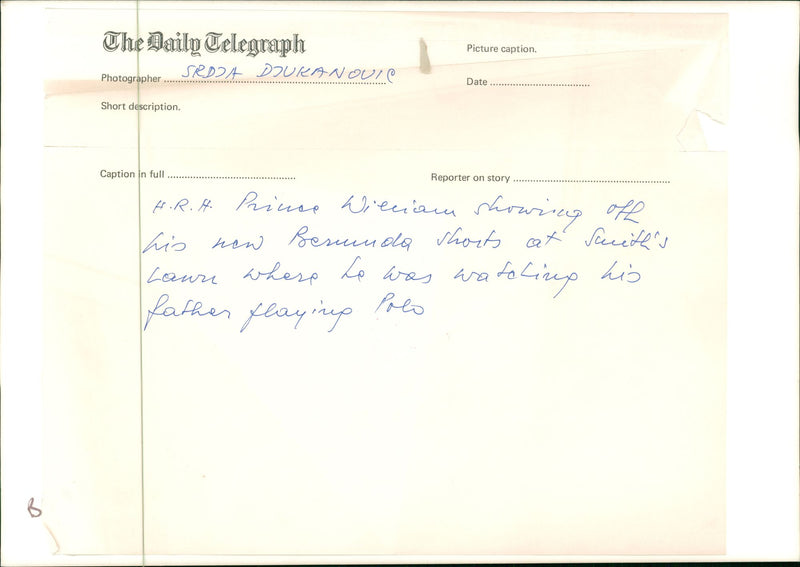 The Daily Telegraph
Picture caption.
Photographer SRDJA DJUKANOVIC
Date
Short description.
Caption in full
Reporter on story
H.R.H. Prince William showing off
his new Bermuda shorts at Smith's
Lawn where he was watching his
father playing Polo
B